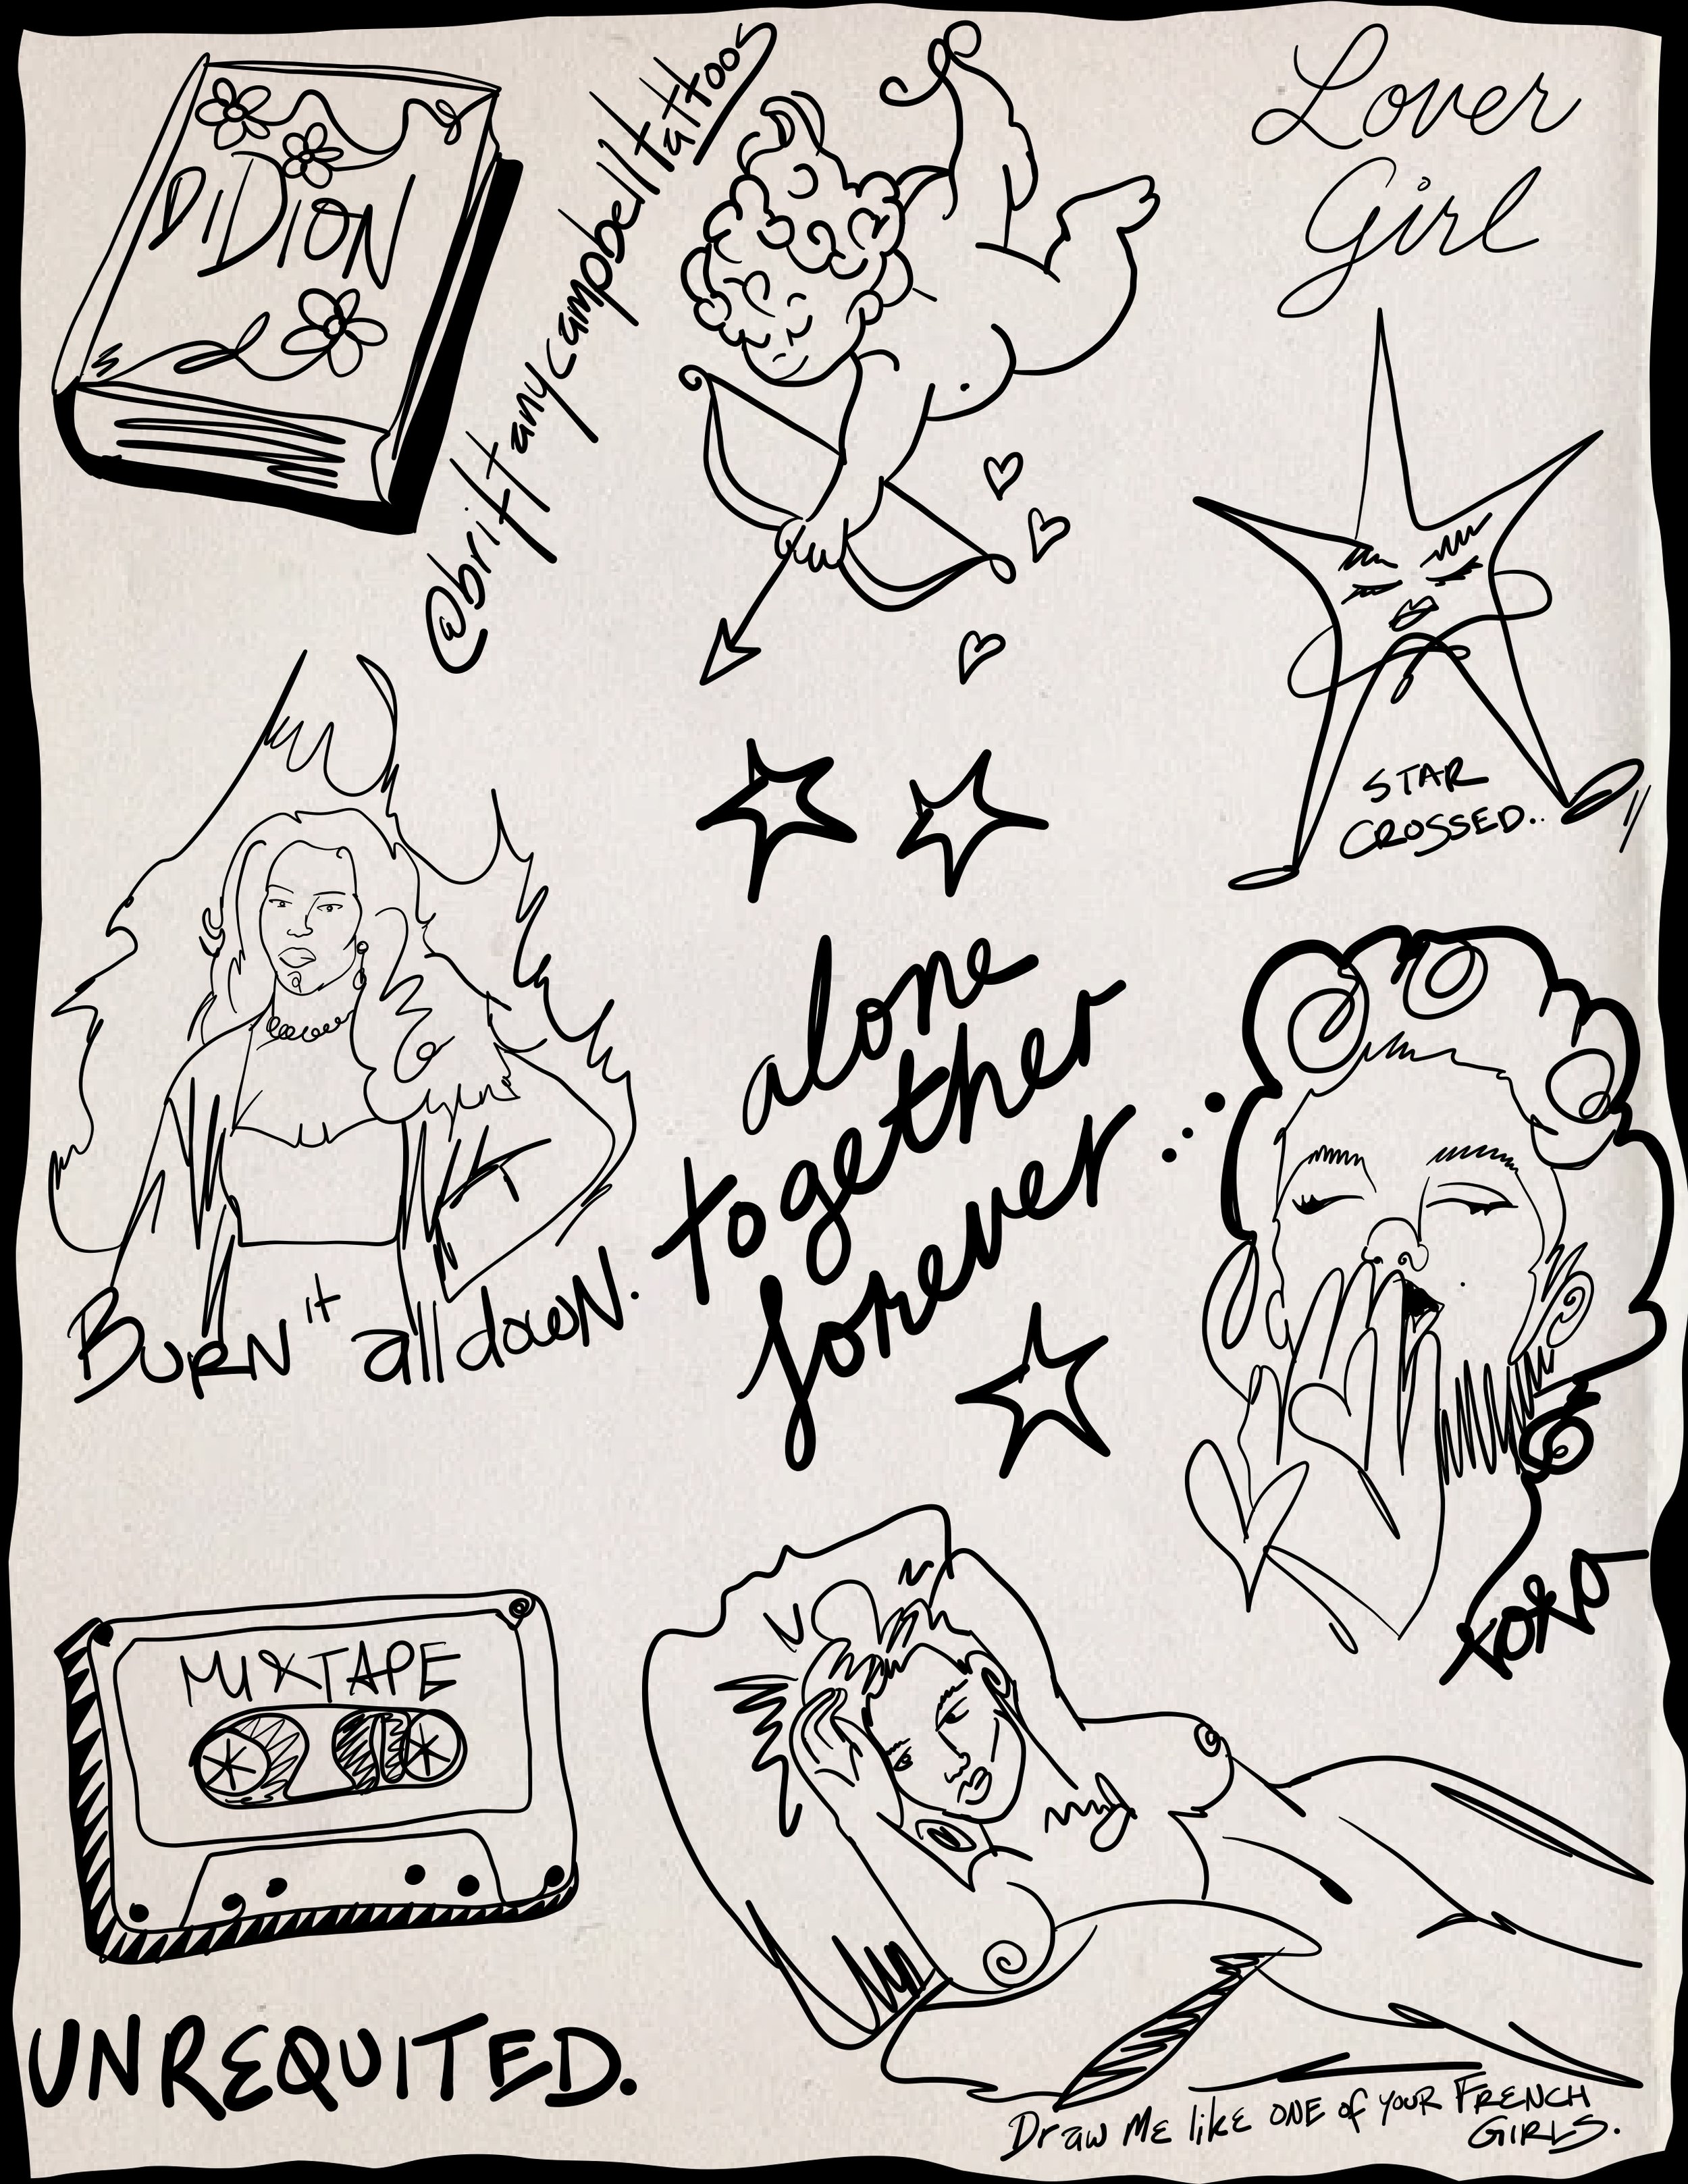 DIDION
@brittanycampbelltattoos
Lover
Girl
STAR
CROSSED..
BURN it all down.
alone
together
forever...
xoxo
MIXTAPE
UNREQUITED.
Draw ME likE ONE of YOUR FRENCH
GIRLS.